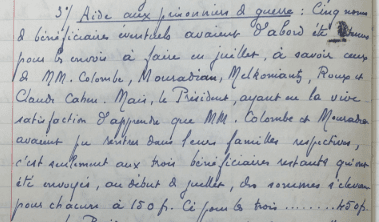 3°/ Aide aux prisonniers de guerre : Cinq noms
de bénéficiaires éventuels avaient d'abord été
pour les envois à faire en juillet, à savoir ceux
de MM. Colombe, Mouradian, Melkoniantz, Roux et
Claude Cahen. Mais, le Président, ayant eu la vive
satisfaction d'apprendre que MM. Colombe et Mouradian
avaient pu rentrer dans leurs familles respectives,
c'est seulement aux trois bénéficiaires restants qu'ont
été envoyées, au début de juillet, des sommes s'élevant
pour chacun à 150 f. Ci pour les trois ......... 450 f.